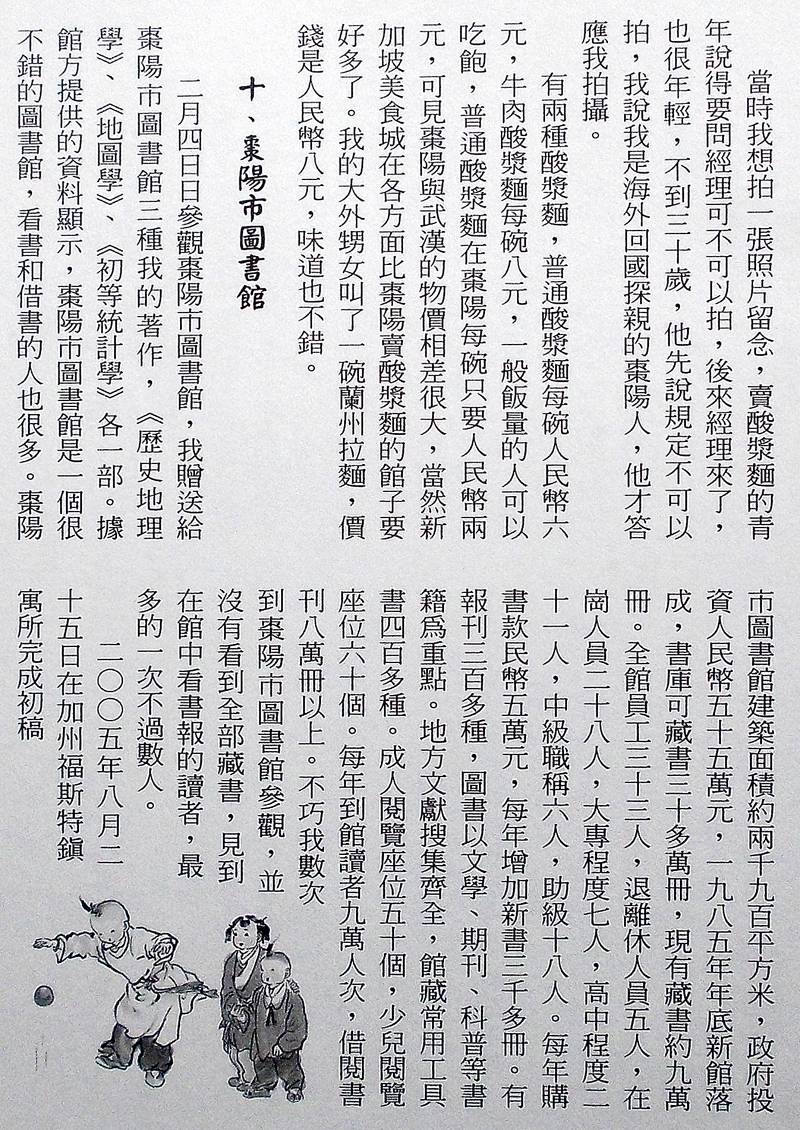 當時我想拍一張照片留念，賣酸漿麵的青
年說得要問經理可不可以拍，後來經理來了，
也很年輕，不到三十歲，他先說規定不可以
拍，我說我是海外回國探親的棗陽人，他才答
應我拍攝。
有兩種酸漿麵，普通酸漿麵每碗人民幣六
元，牛肉酸漿麵每碗八元，一般飯量的人可以
吃飽，普通酸漿麵在棗陽每碗只要人民幣兩
元，可見棗陽與武漢的物價相差很大，當然新
加坡美食城在各方面比棗陽賣酸漿麵的館子要
好多了。我的大外甥女叫了一碗蘭州拉麵，價
錢是人民幣八元，味道也不錯。
十、棗陽市圖書館
二月四日日參觀棗陽市圖書館，我贈送給
棗陽市圖書館三種我的著作，《歷史地理
學》、《地圖學》、《初等統計學》各一部。據
館方提供的資料顯示，棗陽市圖書館是一個很
不錯的圖書館，看書和借書的人也很多。棗陽
市圖書館建築面積約兩千九百平方米，政府投
資人民幣五十五萬元，一九八五年年底新館落
成，書庫可藏書三十多萬冊，現有藏書約九萬
冊。全館員工三十三人，退離休人員五人，在
崗人員二十八人，大專程度七人，高中程度二
十一人，中級職稱六人，助級十八人。每年購
書款民幣五萬元，每年增加新書三千多冊。有
報刊三百多種，圖書以文學、期刊、科普等書
籍為重點。地方文獻搜集齊全，館藏常用工具
書四百多種。成人閱覽座位五十個，少兒閱覽
座位六十個。每年到館讀者九萬人次，借閱書
刊八萬冊以上。不巧我數次
到棗陽市圖書館參觀，並
沒有看到全部藏書，見到
在館中看書報的讀者，最
多的一次不過數人。
二〇〇五年八月二
十五日在加州福斯特鎮
寓所完成初稿